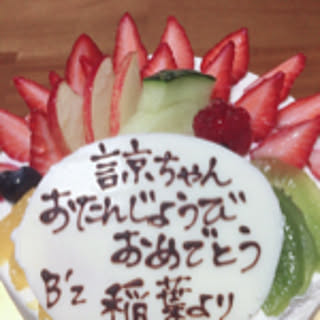 諒ちゃん
おたんじょうび
おめでとう
B'z 稲葉より